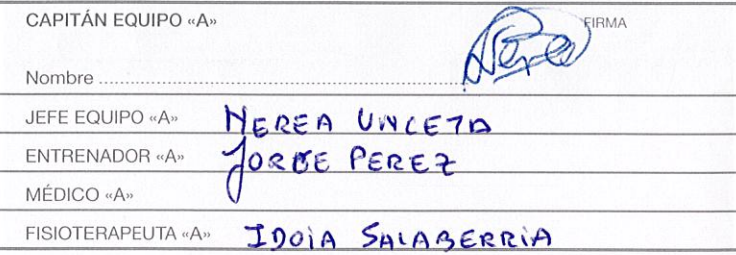 CAPITÁN EQUIPO «A»
FIRMA
Nombre
JEFE EQUIPO «A» NEREA UNCETA
ENTRENADOR «A» JORGE PEREZ
MÉDICO «A»
FISIOTERAPEUTA «A» IDOiA SALABERRiA